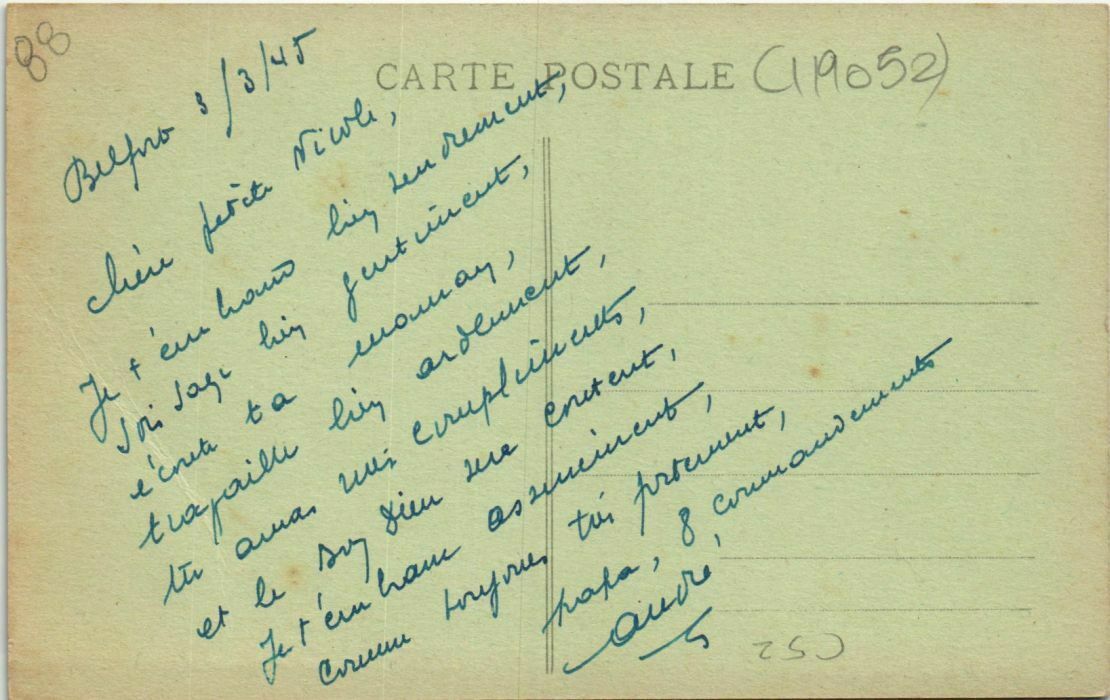 88
CARTE POSTALE (119052)
Belfort 3/3/45
Chère petite Nicole,
Je t'embrasse bien tendrement,
Sois sage bien gentiment,
écoute ta maman,
travaille bien ardemment,
tu auras mes compliments,
et le Bon Dieu sera content,
Je t'embrasse assurément,
comme toujours très fortement,
papa, 8 commandements
André
250